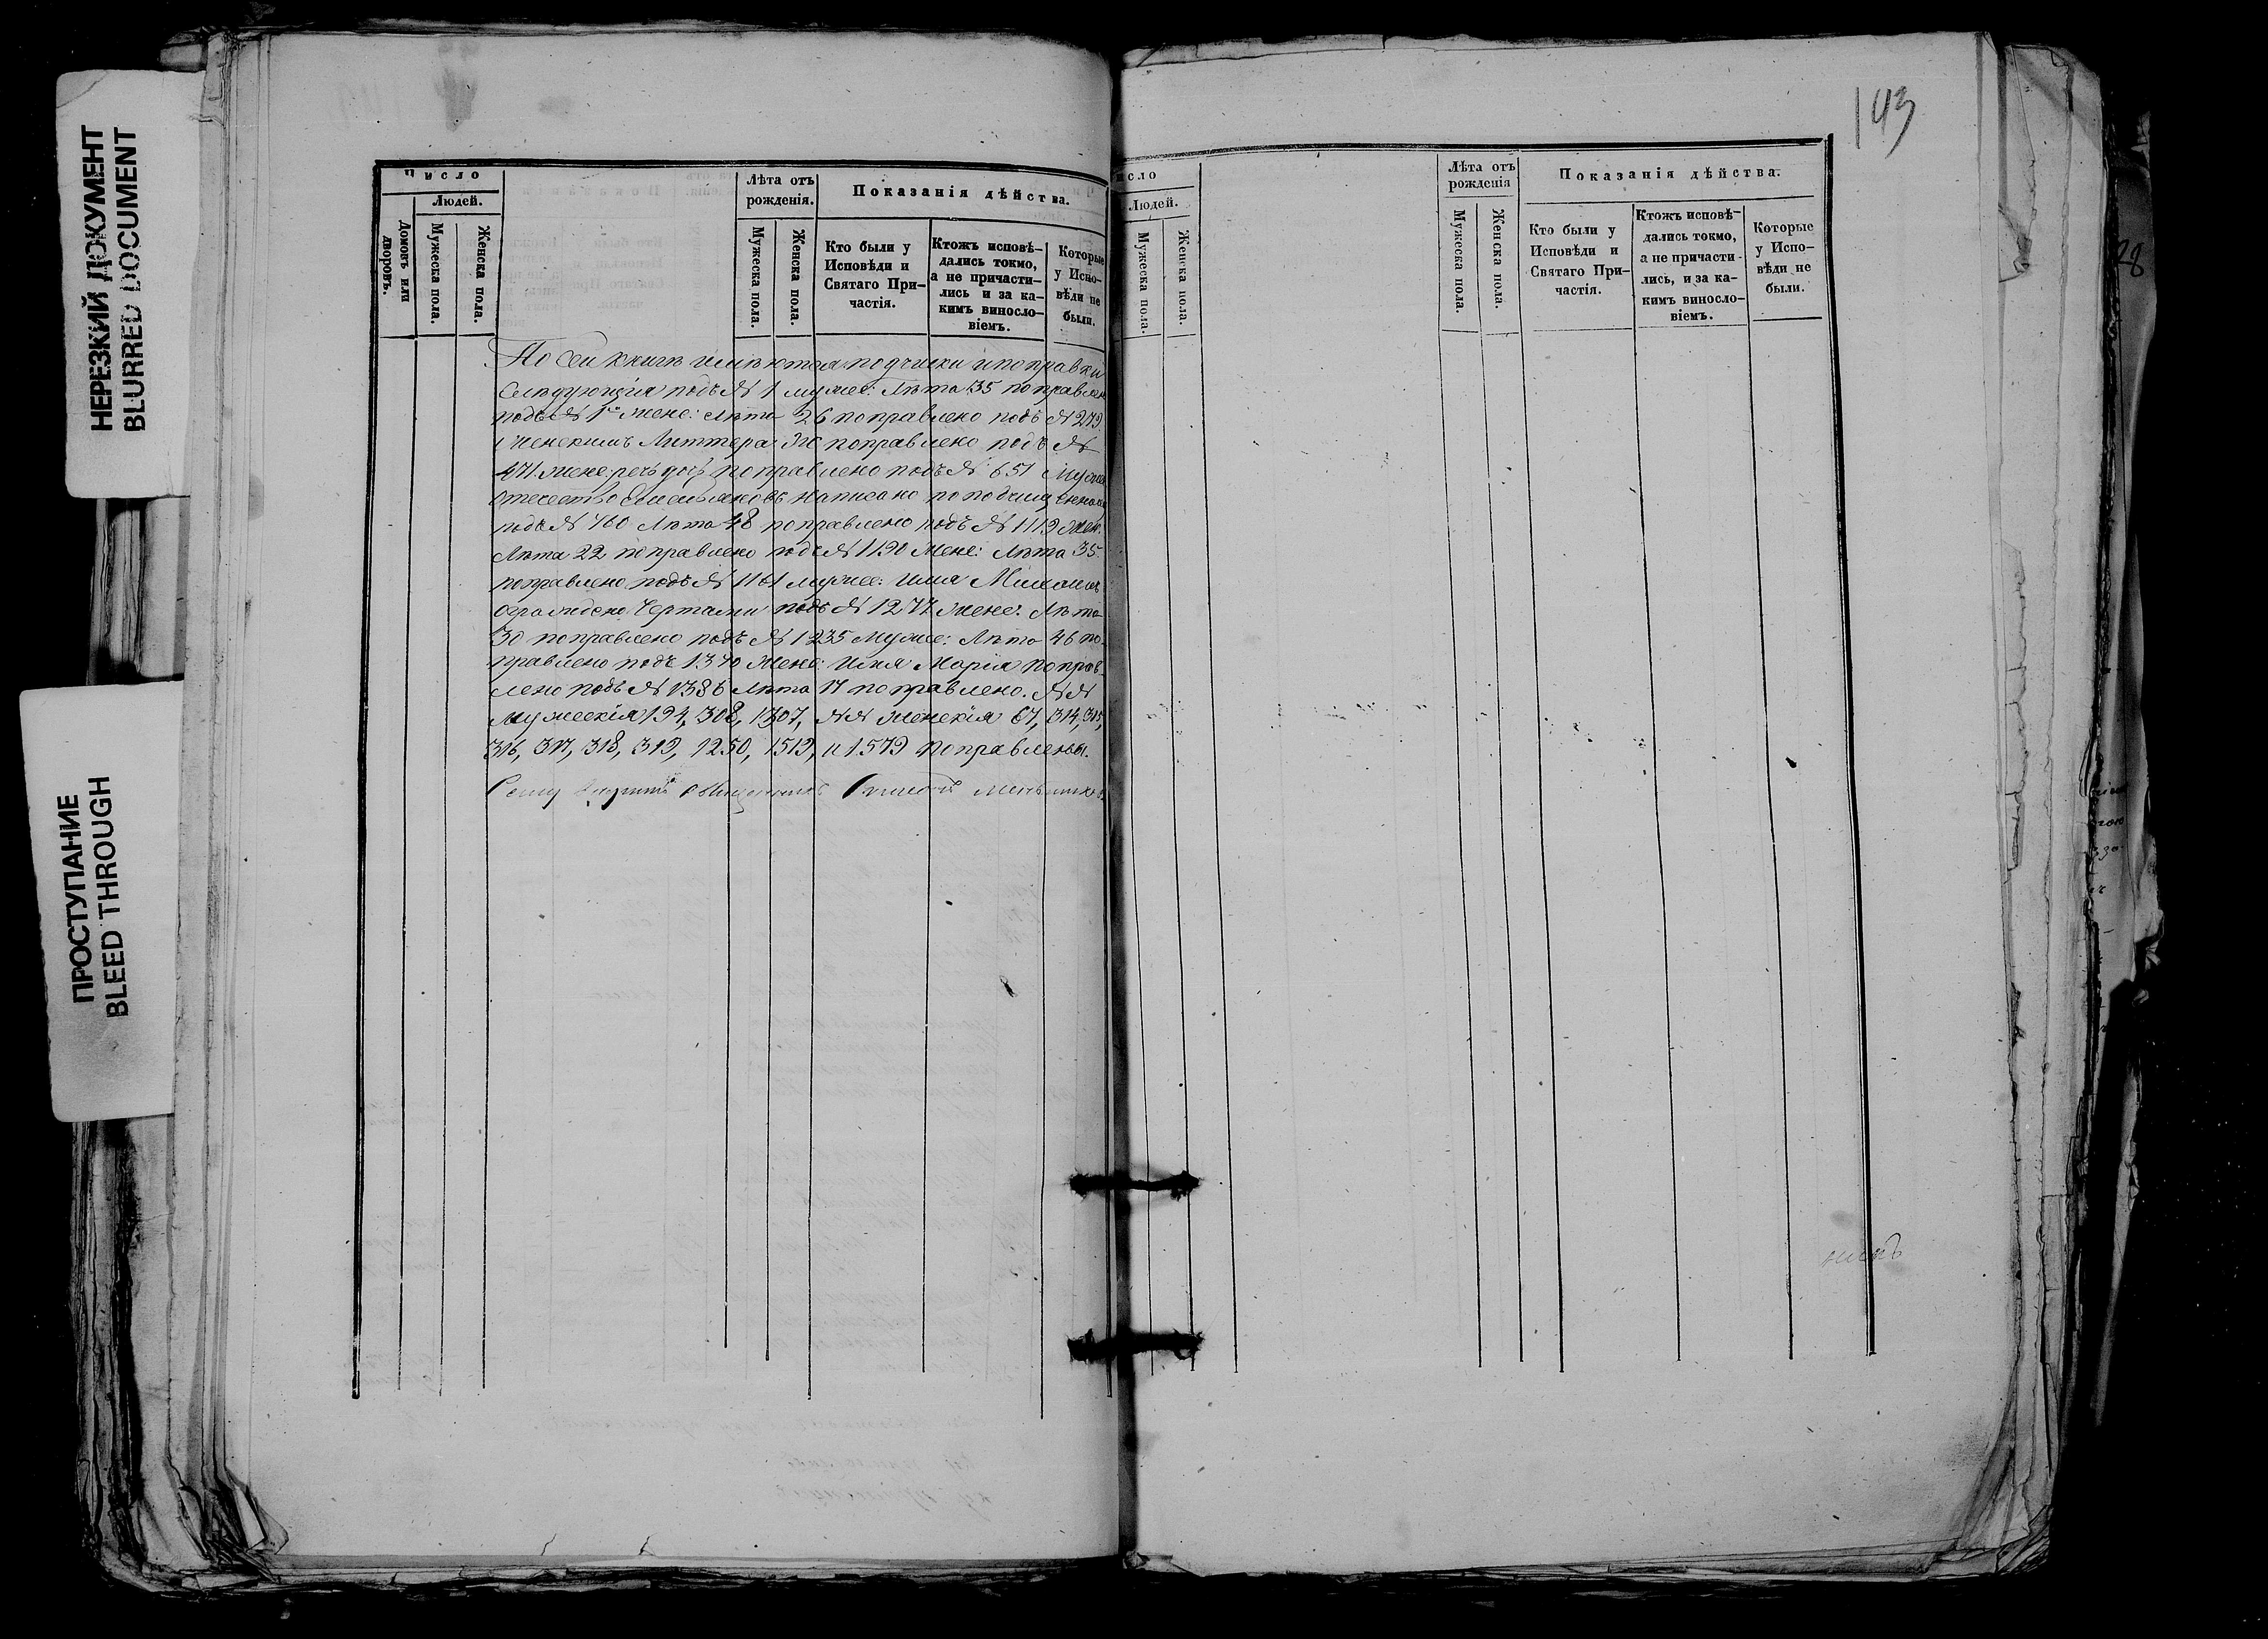 НЕРЕЗКИЙ ДОКУМЕНТ
BLURRED DOCUMENT
ПРОСТУПАНИЕ
BLEED THROUGH
Число
Людей.
Домовъ или дворовъ.
Мужеска пола.
Женска пола.
Лѣта отъ рожденія.
Мужеска пола.
Женска пола.
Показанія дѣйства.
Кто были у Исповѣди и Святаго Причастія.
Ктожъ исповѣдались токмо, а не причастились и за какимъ винословіемъ.
Которые у Исповѣди не были.
По сей книгѣ имѣются подчистки и поправки
слѣдующія подъ № 1 мужес: лѣта 35 поправлен
подъ № 1 женс: лѣта 26 поправлено подъ № 279
женскимъ Литтера Ж поправлено подъ №
471 женс: речь дочь поправлено подъ № 651 мужес
отечество написано по подчищенному
подъ № 760 лѣта 48 поправлено подъ № 1119 жен.
лѣта 22 поправлено подъ № 1190 женс: лѣта 35.
поправлено подъ № 1161 мужес: имя
ограждено чертами подъ № 1277 женс: лѣта
30 поправлено подъ № 1235 мужес: лѣта 46 по-
правлено подъ 1340 женс: имя Марія поправ-
лено подъ № 1386 лѣта 17 поправлено. №№
мужескія 194, 308, 1307, №№ женскія 67, 314, 315,
316, 317, 318, 319, 1250, 1519, и 1579 поправлены.
Священникъ
143
исло
Людей.
Мужеска пола.
Женска пола.
Лѣта отъ рожденія
Мужеска пола.
Женска пола.
Показанія дѣйства.
Кто были у Исповѣди и Святаго Причастія.
Ктожъ исповѣдались токмо, а не причастились, и за какимъ винословіемъ.
Которые у Исповѣди не были.
никъ